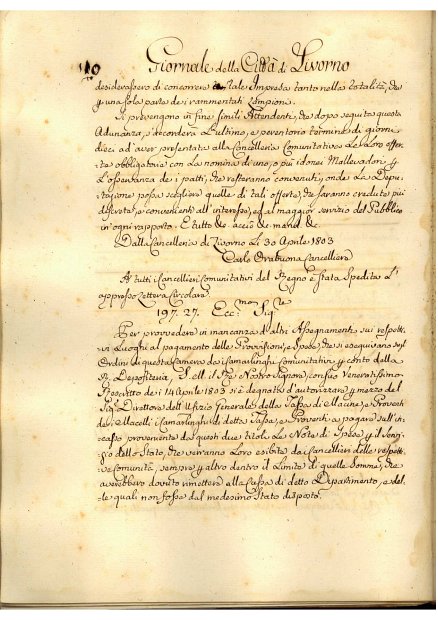 110 Giornale della Città di Livorno
desiderassero di concorrere a tale Impresa tanto nella totalità, che
p una sola parte dei rammentati Lampioni.
Si prevengono in fine simili Attendenti, che dopo seguita questa
Adunanza, s'accorderà l'ultimo, e perentorio termine di giorni
dieci ad aver presentate alla Cancelleria Comunitativa le loro offer-
te obbligatorie con la nomina di uno, o più idonei Mallevadori p
l'osservanza dei patti, che resteranno convenuti, onde la Depu-
tazione possa scegliere quelle di tali offerte, che saranno credute più
discrete, e convenienti all'interesse, ed al maggior servizio del Pubblico
in ogni rapporto. E tutto &c. acciò &c. mand. &c.
Dalla Cancelleria di Livorno Li 30 Aprile 1803
Carlo Orabuona Cancelliere
A tutti i Cancellieri Comunitativi del Regno è stata spedita l'
appresso Lettera Circolare.
197. 27. Ecc.mo Sig.re
Per provvedere in mancanza d'altri Assegnamenti sui rispetti-
vi Luoghi al pagamento delle Provvisioni, e Spese, che si eseguivano sugl'
Ordini di questa Camera da i Camarlinghi Comunitativi p conto della
R. Depositeria, S. ell. il Re Nostro Signore, con suo Veneratissimo
Rescritto de i 14 Aprile 1803 si è degnato d'autorizzare p mezzo del
Sig. Direttore dell'Ufizio Generale della Tassa di Macine, e Proventi
dei Macelli i Camarlinghi di detta Tassa, e Proventi a pagare sull'in-
casso proveniente da questi due titoli le Note di Spese p il Servi-
gio dello Stato, che verranno Loro esibite da i Cancellieri delle rispetti-
ve Comunità, sempre p altro dentro il Limite di quelle Somme, che
averebbero dovuto rimettere alla Cassa di detto Dipartimento, e del-
le quali non fosse dal medesimo stato disposto.